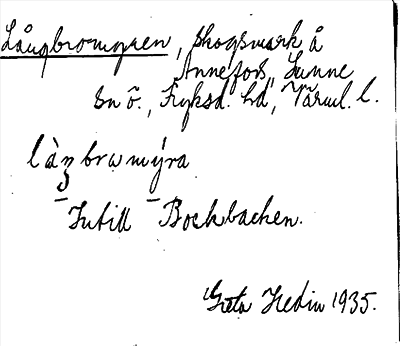 Långbromyren, skogsmark å
Annefors, Sunne
sn ö., Fryksd. hd, Värml. l.
làŋbramýra
Intill Bockbacken.
Greta Hedin 1935.